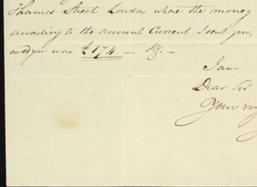 Thames Street London where the money
according to the account Current I sent you,
was £174 —
I am
Dear Sir
Your